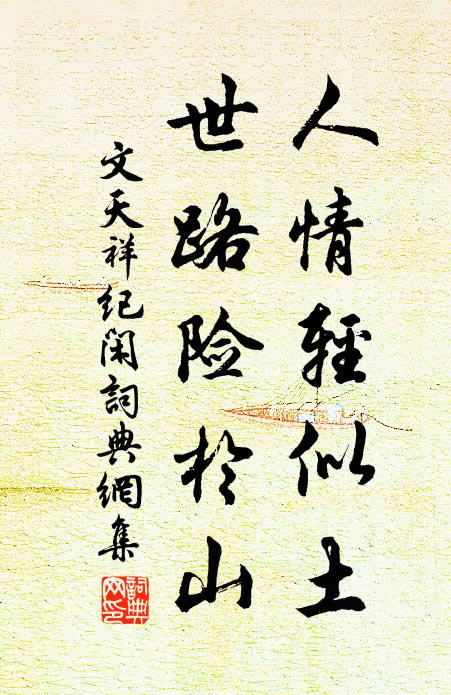 人情輕似土
世路险於山
文天祥纪闲詞典網集
詞典网印